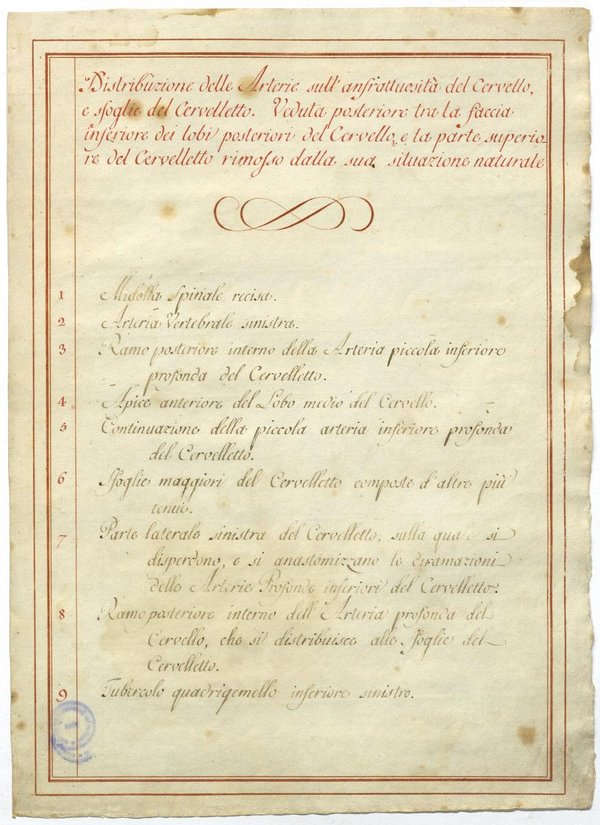 Distribuzione delle Arterie sull' anfrattuosità del Cervello,
e sfoglie del Cervelletto. Veduta posteriore tra la faccia
inferiore dei lobi posteriori del Cervello, e la parte superio-
re del Cervelletto rimosso dalla sua situazione naturale
1 Midolla Spinale recisa.
2 Arteria Vertebrale sinistra.
3 Ramo posteriore interno della Arteria piccola inferiore
profonda del Cervelletto.
4 Apice anteriore del Lobo medio del Cervello.
5 Continuazione della piccola arteria inferiore profonda
del Cervelletto.
6 Sfoglie maggiori del Cervelletto composte d'altre più
tenui.
7 Parte laterale sinistra del Cervelletto, sulla quale si
disperdono, e si anastomizzano le diramazioni
delle Arterie Profonde inferiori del Cervelletto.
8 Ramo posteriore interno dell' Arteria profonda del
Cervello, che si distribuisce alle Sfoglie del
Cervelletto.
9 Tubercolo quadrigemello inferiore sinistro.